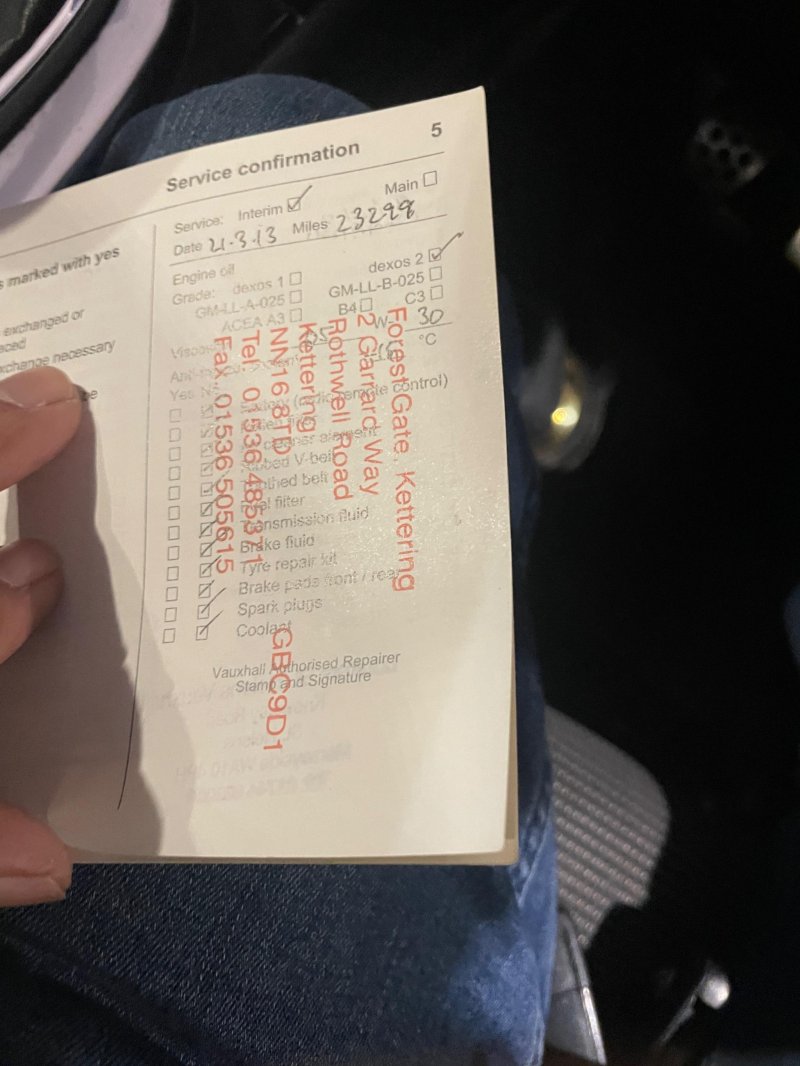 5
Service confirmation
Service: Interim ☑ Main ☐
Date 21.3.13 Miles 23298
s marked with yes
Engine oil
Grade: dexos 1 ☐ dexos 2 ☑
GM-LL-A-025 ☐ GM-LL-B-025 ☐
ACEA A3 ☐ B4 ☐ C3 ☐
W- 30
°C
exchanged or
xchange necessary
Yes No
remote control)
cleaner element
V-belt
belt
filter
Transmission fluid
Brake fluid
Tyre repair kit
Brake pads front / rear
Spark plugs
Coolant
Vauxhall Authorised Repairer
Stamp and Signature
Forest Gate, Kettering
2 Garrard Way
Rothwell Road
Kettering
NN16 8TD
Tel 01536 485371
Fax 01536 505615
GBC9D1